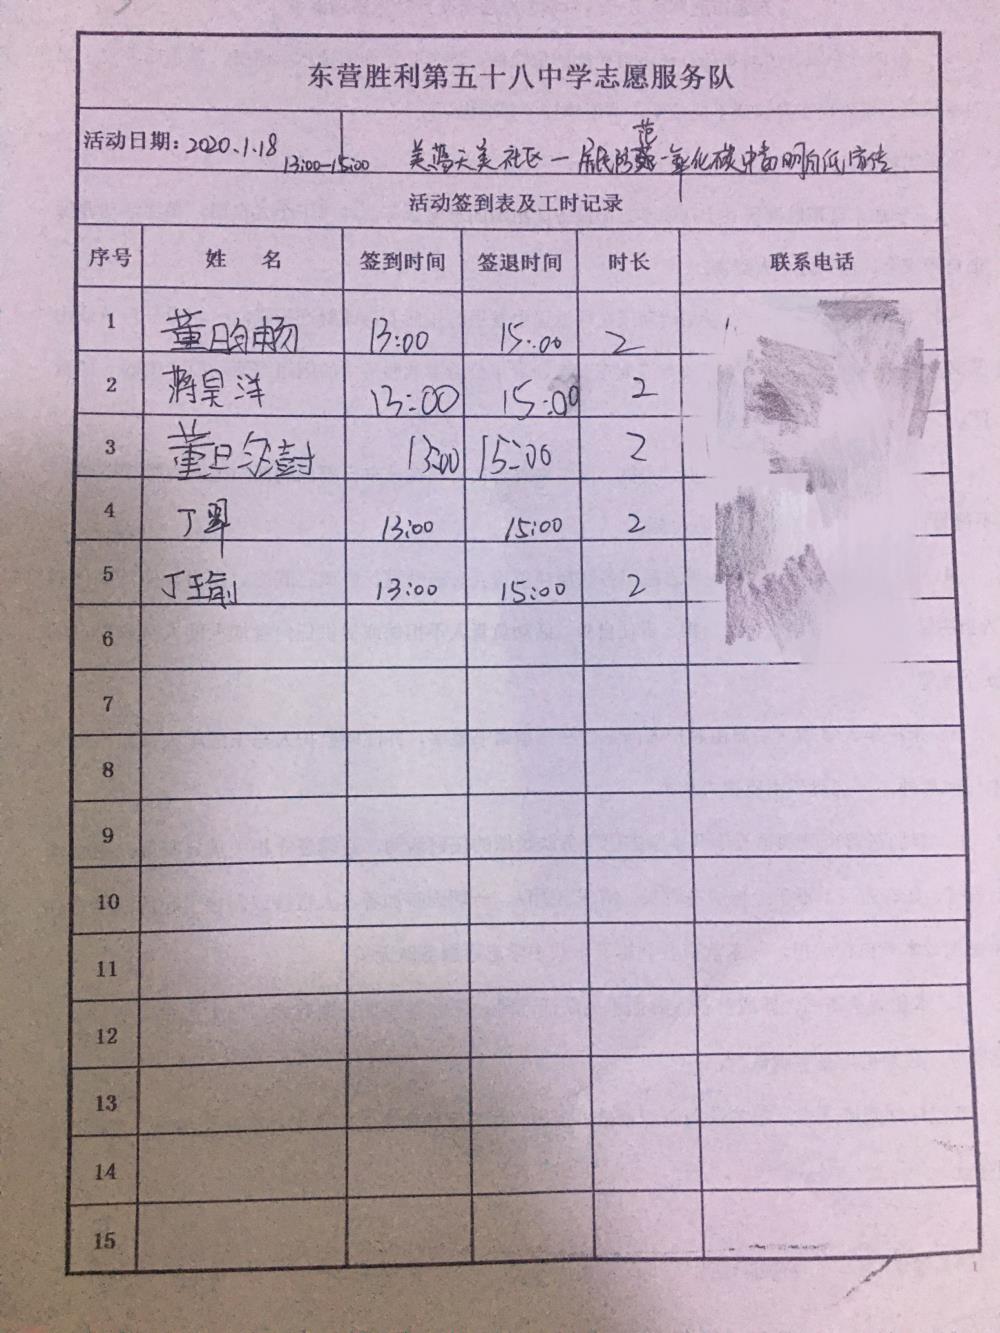 东营胜利第五十八中学志愿服务队
活动日期: 2020.1.18 13:00-15:00 社区一居民防范一氧化碳中毒 宣传
活动签到表及工时记录
序号 姓 名 签到时间 签退时间 时长 联系电话
1 董 畅 13:00 15:00 2
2 蒋昊洋 13:00 15:00 2
3 董 13:00 15:00 2
4 丁 13:00 15:00 2
5 丁 13:00 15:00 2
6
7
8
9
10
11
12
13
14
15